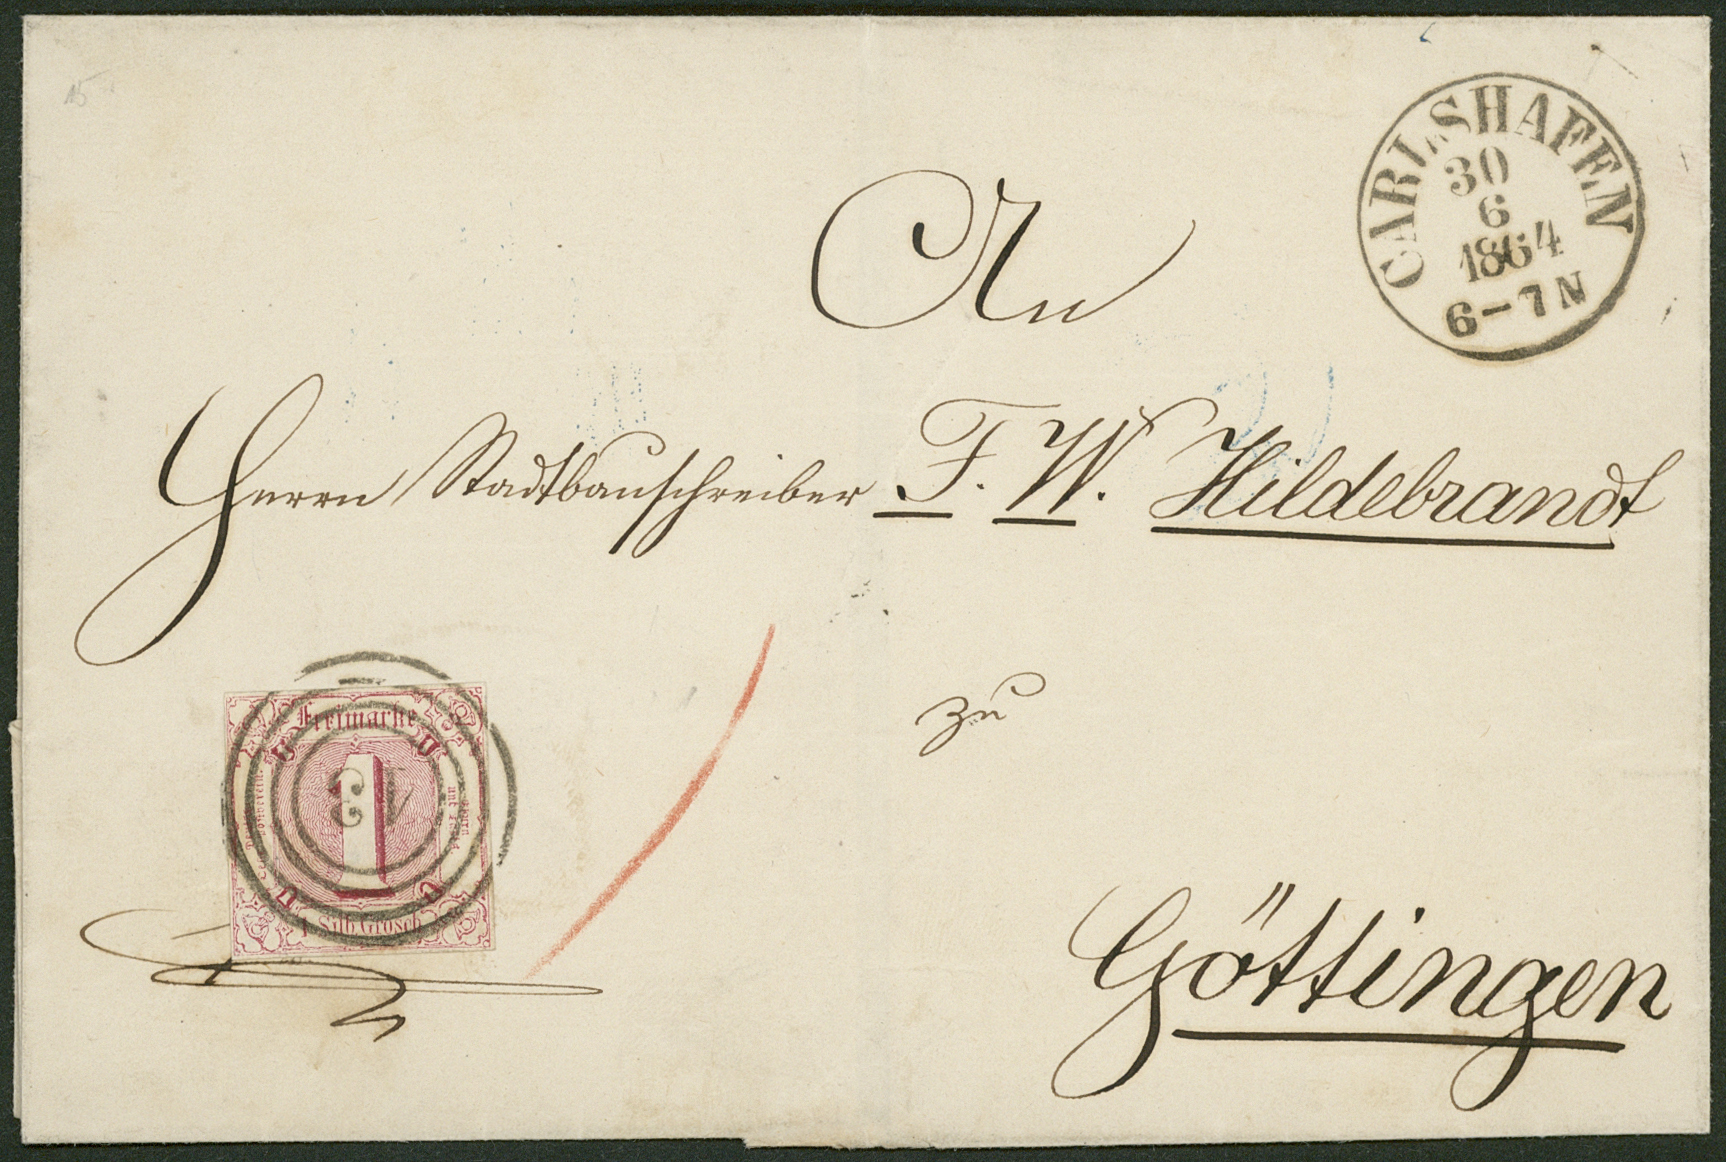 CARLSHAFEN
30
6
1864
6-7 N
An
Herrn Stadtbauschreiber F. W. Hildebrandt
zu
Göttingen
Freimarke
1
1 Silb. Grosch.